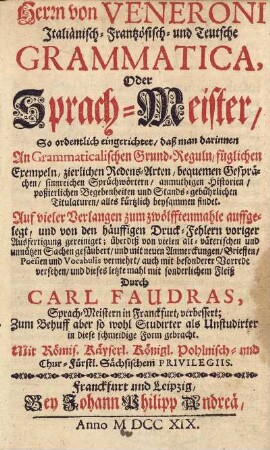 Herrn von VENERONI
Italiänisch-Frantzösisch- und Teutsche
GRAMMATICA,
Oder
Sprach-Meister/
So ordentlich eingerichtet/ daß man darinnen
An Grammaticalischen Grund-Reguln/ füglichen
Exempeln, zierlichen Redens-Arten, bequemen Gesprä-
chen/ sinnreichen Sprüchwörtern/ anmuthigen Historien/
poßierlichen Begebenheiten und Stands-gebührlichen
Titulaturen/ alles kürtzlich beysammen findet.
Auf vieler Verlangen zum zwölfftenmahle auffge-
legt/ und von den häuffigen Druck-Fehlern voriger
Ausfertigung gereiniget; überdiß von vielen alt-väterischen und
unnützen Sachen gesäubert/ und mit neuen Anmerckungen/ Brieffen/
Poeten und Vocabulis vermehret/ auch mit besonderer Vorrede
versehen/ und dieses letzte mahl mit sonderlichem Fleiß
Durch
CARL FAUDRAS,
Sprach-Meistern in Franckfurt/ verbessert;
Zum Behuff aber so wohl Studirter als Unstudirter
in diese schneidige Form gebracht.
Mit Römis. Käyserl. Königl. Pohlnisch- und
Chur-Fürstl. Sächsischem PRIVILEGIIS.
Franckfurt und Leipzig,
Bey Johann Philipp Andreä/
Anno M DCC XIX.